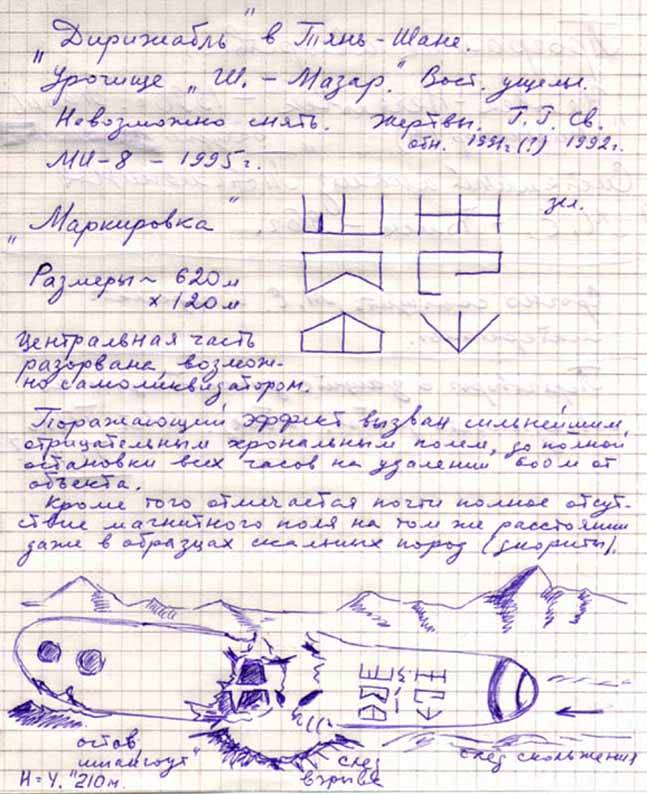 "Дирижабль" в Тянь-Шане.
Урочище „Ш.-Мазар." Вост. ущелье.
Невозможно снять. Жертвы. Г.Г. Св.
отн. 1991г (?) 1992г.
МИ-8 – 1995г.
"Маркировка"
Размеры ~ 620м
х 120м
Центральная часть
разорвана, возмож-
но самоликвизатором.
Поражающий эффект вызван сильнейшим,
отрицательным хрональным полем, до полной
остановки всех часов на удалении 600м от
объекта.
Кроме того отмечается почти полное отсут-
ствие магнитного поля на том же расстоянии
даже в образцах скальных пород (диориты).
остов,
„шпангоут"
след
взрыва
след скольжения
Н = 4.210м.